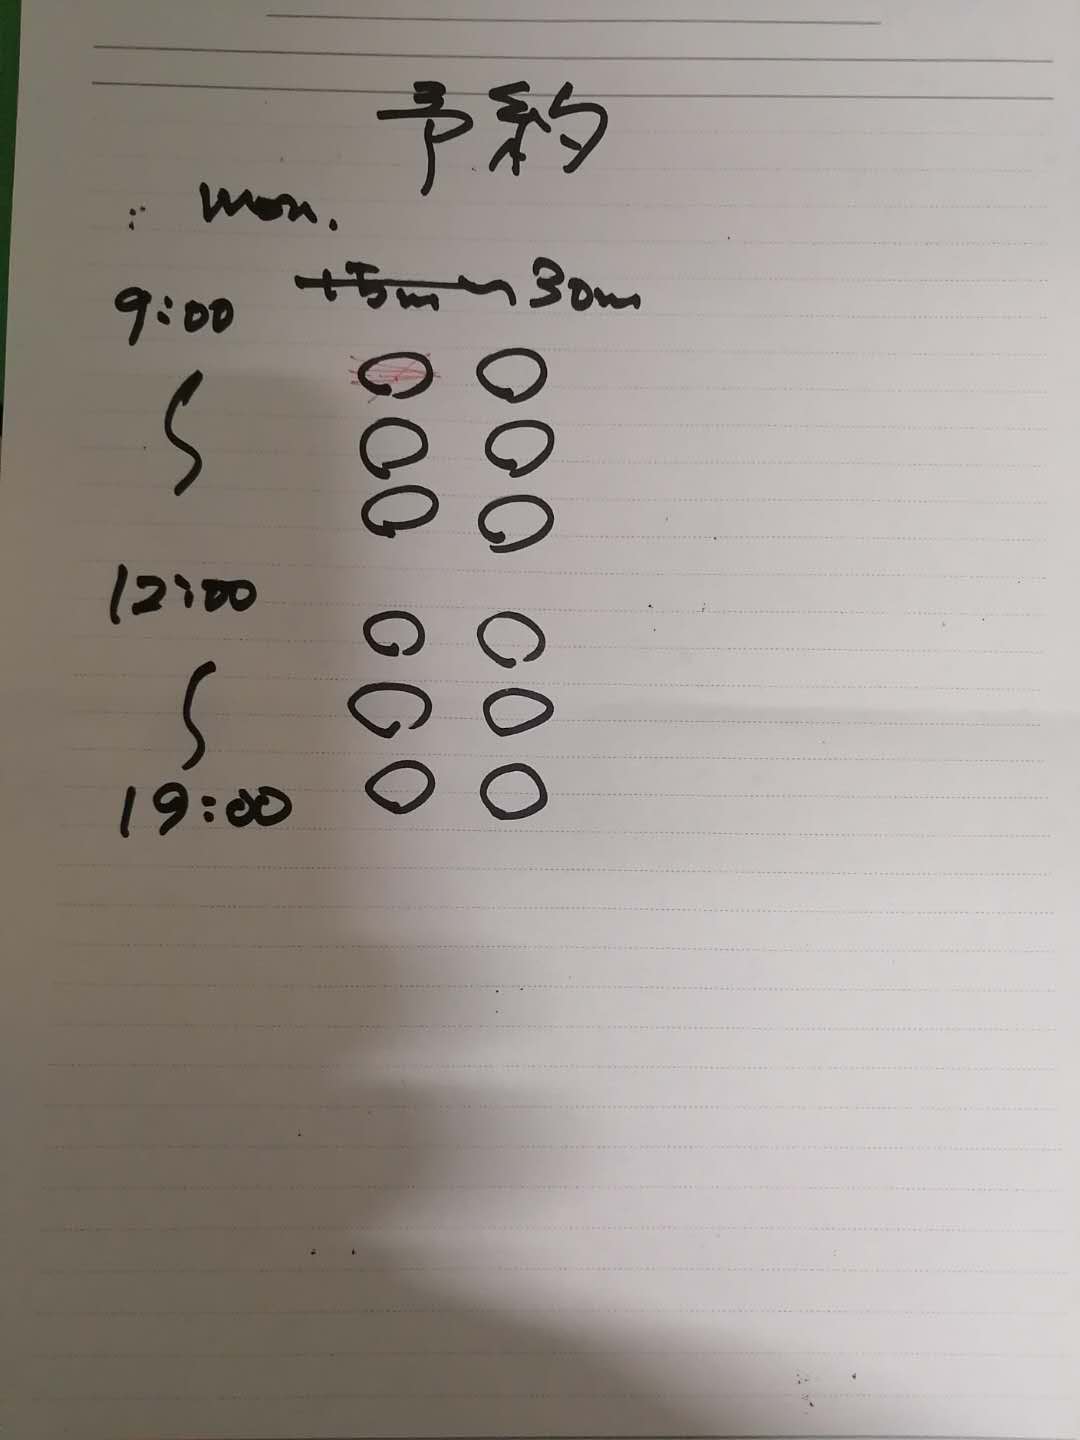 予約
Mon.
9:00
15m 〜 30m
〜
12:00
〜
19:00